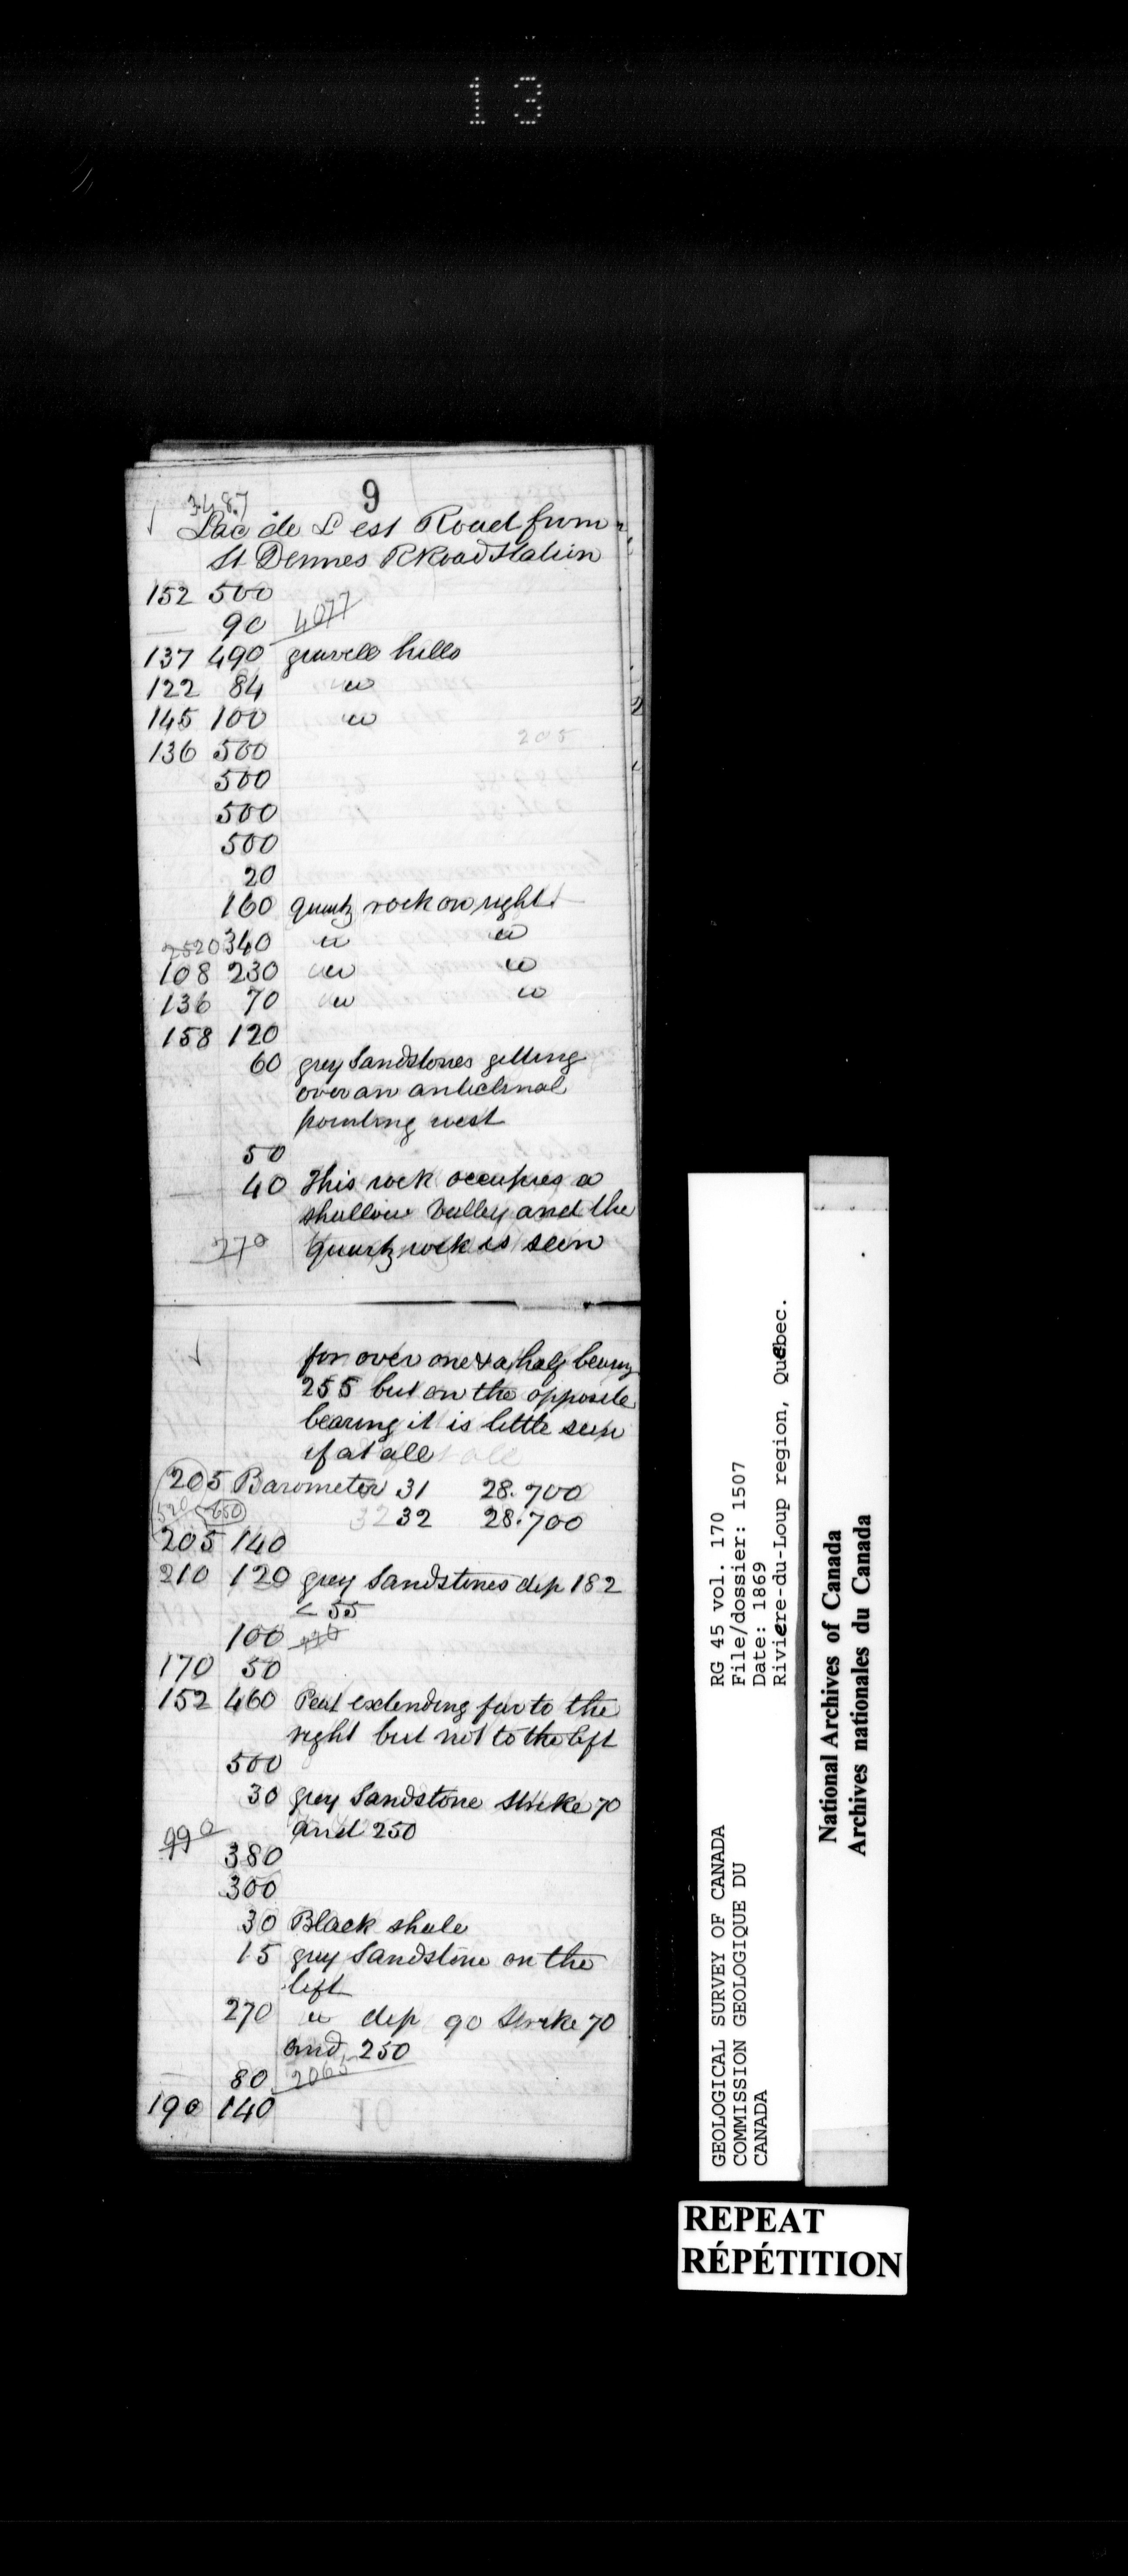 13
9
3487
Lac de L est Road from
St Dennes RRoad Station
152 500
90 4077
137 490 gravell hills
122 84 "
145 100 "
136 500
500
500
500
20
160 quartz rock on right
2520 340 " "
108 230 " "
136 70 " "
158 120
60 grey Sandstones getting
over an anticlinal
pointing west
50
40 This rock occupies a
shallow Valley and the
270 quartz rock is seen
for over one & a half bearing
255 but on the opposite
bearing it is little seen
if at all
205 Barometer 31 28.700
520 650 32 28.700
205 140
210 120 grey Sandstones dip 182
< 55
100
170 50
152 460 Peat extending far to the
right but not to the left
500
30 grey Sandstone Strike 70
and 250
990
380
300
30 Black shale
15 grey Sandstone on the
left
270 " dip 90 Strike 70
and 250
80 2065
190 140
GEOLOGICAL SURVEY OF CANADA
COMMISSION GEOLOGIQUE DU
CANADA
RG 45 vol. 170
File/dossier: 1507
Date: 1869
Riviere-du-Loup region, Quebec.
National Archives of Canada
Archives nationales du Canada
REPEAT
RÉPÉTITION